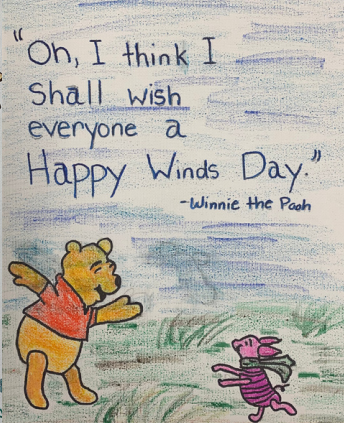 "Oh, I think I
Shall wish
everyone a
Happy Winds Day."
-Winnie the Pooh